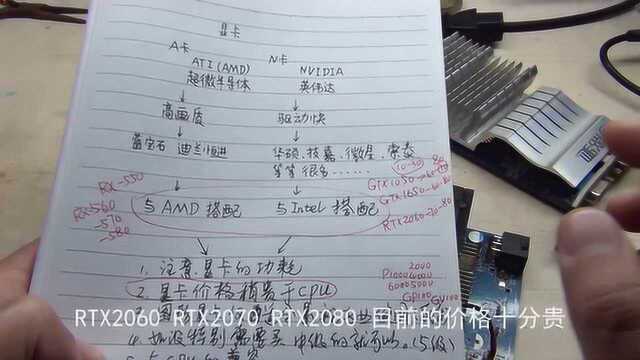 显卡
A卡 N卡
ATI(AMD) NVIDIA
超微半导体 英伟达
高画质 驱动快
蓝宝石 迪兰恒进 华硕、技嘉、微星、索泰
等等很多……
RX-550
RX-560
-570
-580
GTX1050-60-70-80
GTX1650-60-80
RTX2060-70-80
与AMD搭配 与Intel搭配
1. 注意显卡的功耗
2. 显卡价格稍贵于CPU
2000
P1000
6000
GP100
RTX2060 RTX2070 RTX2080 目前的价格十分贵
4. 如没特别需要买中低的就可以。(5级)